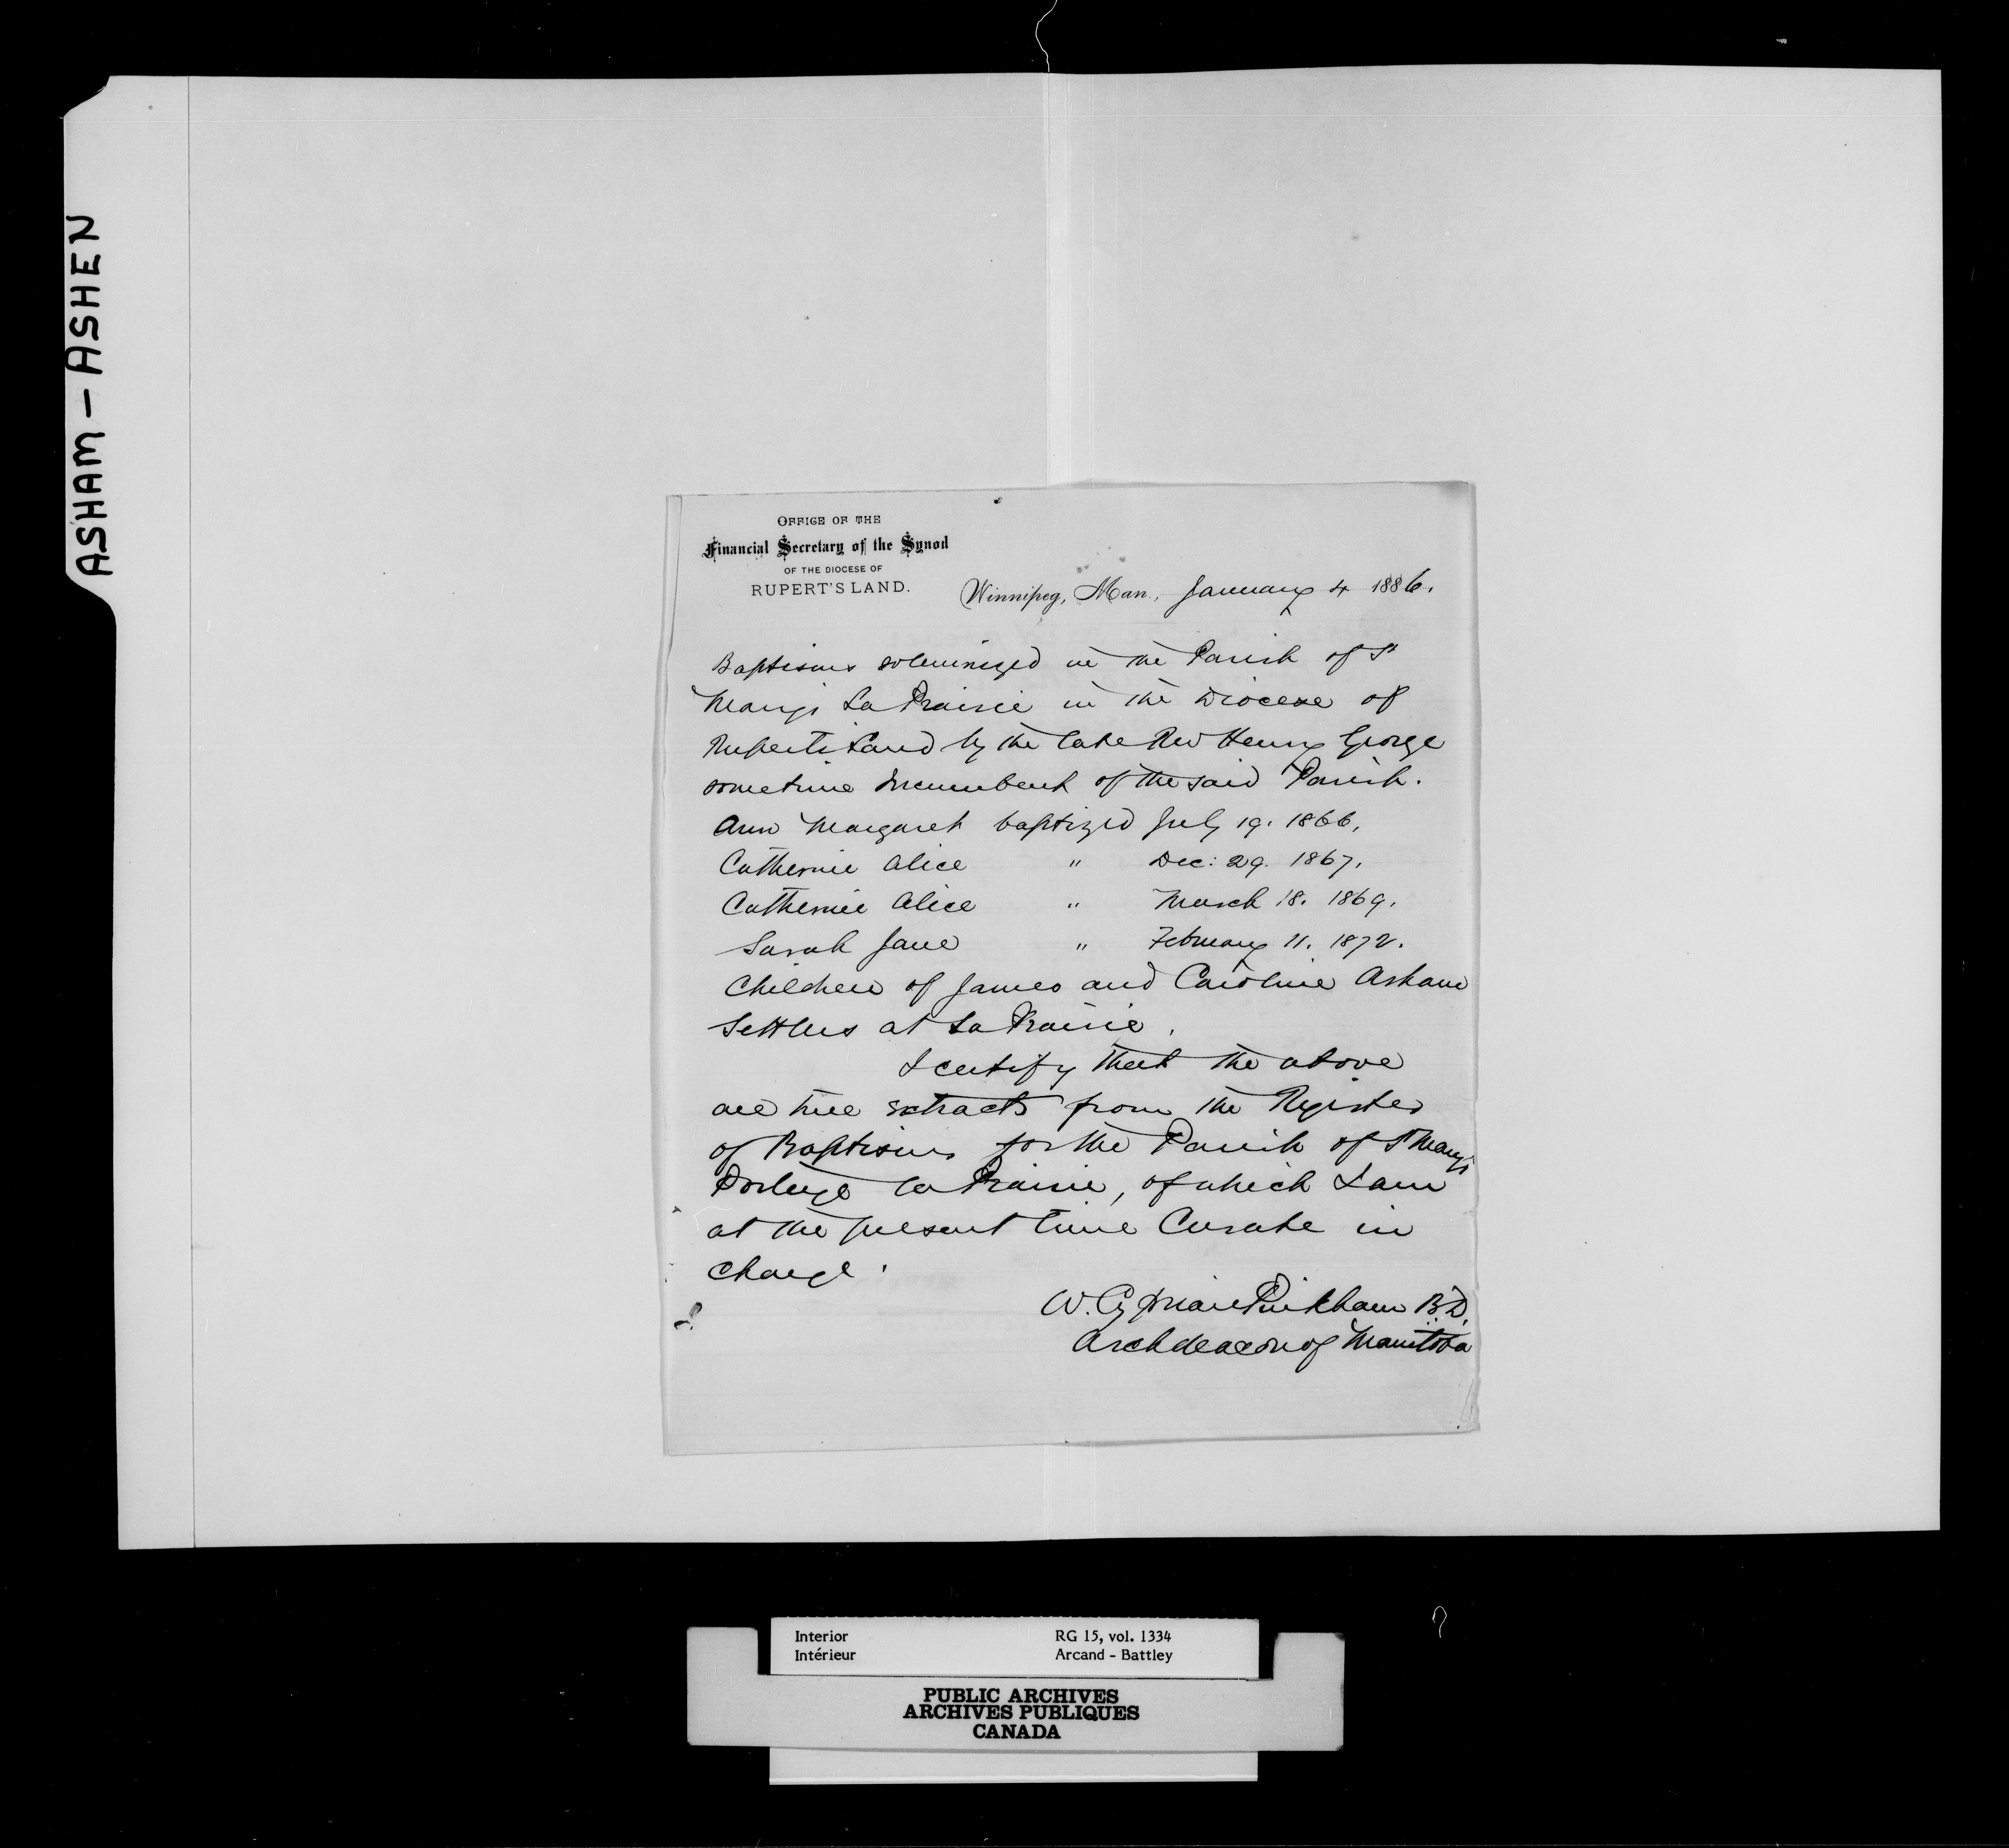 ASHAM - ASHEN
OFFICE OF THE
Financial Secretary of the Synod
OF THE DIOCESE OF
RUPERT'S LAND.
Winnipeg, Man., January 4 1886.
Baptisms solemnized in the Parish of St
Mary's La Prairie in the Diocese of
Rupert's Land by the late Rev Henry George
sometime Incumbent of the said Parish.
Ann Margaret baptized July 19. 1866.
Catherine Alice " Dec: 29. 1867.
Catherine Alice " March 18. 1869.
Sarah Jane " February 11. 1872.
Children of James and Caroline Asham
Settlers at La Prairie.
I certify that the above
are true extracts from the Register
of Baptisms for the Parish of St Mary's
Portage la Prairie, of which I am
at the present time Curate in
charge.
W. Cyprian Pinkham B.D.
Archdeacon of Manitoba
Interior RG 15, vol. 1334
Intérieur Arcand - Battley
PUBLIC ARCHIVES
ARCHIVES PUBLIQUES
CANADA